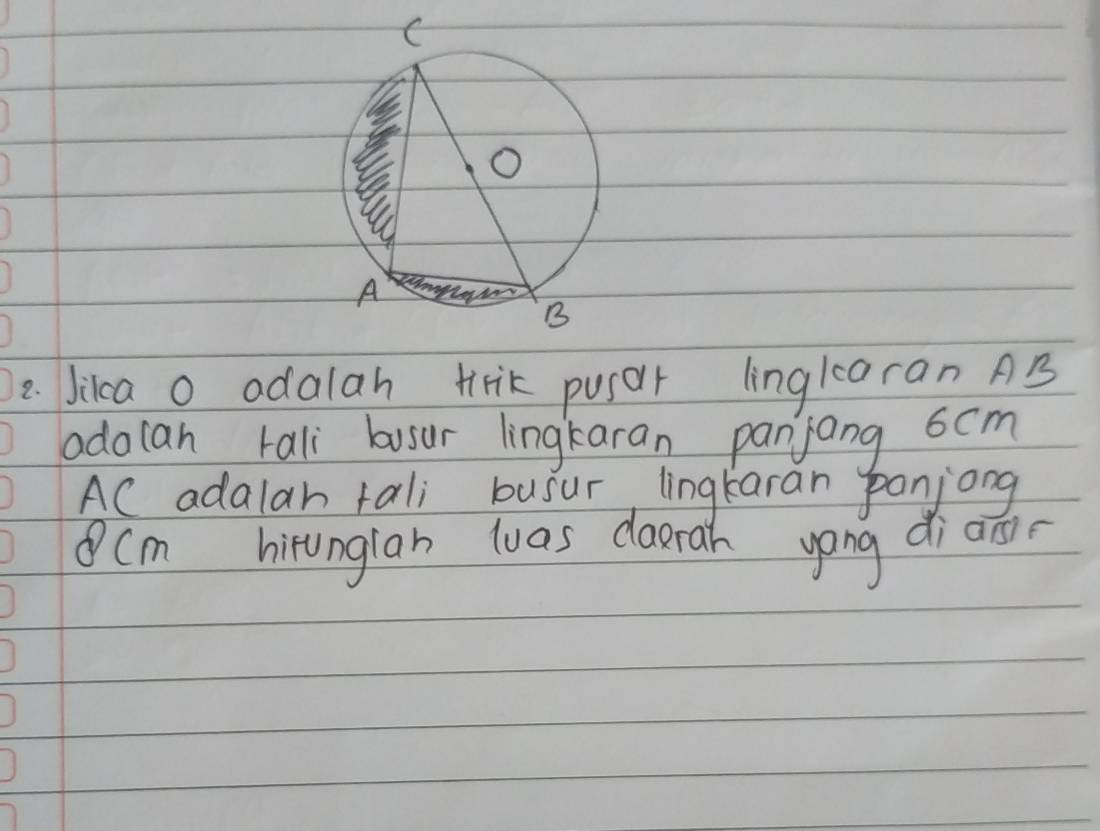 C
O
A
B
2. Jika O adalah titik pusat lingkaran AB
adalah tali busur lingkaran panjang 6cm
AC adalah tali busur lingkaran panjang
8cm hitunglah luas daerah yang di arsir